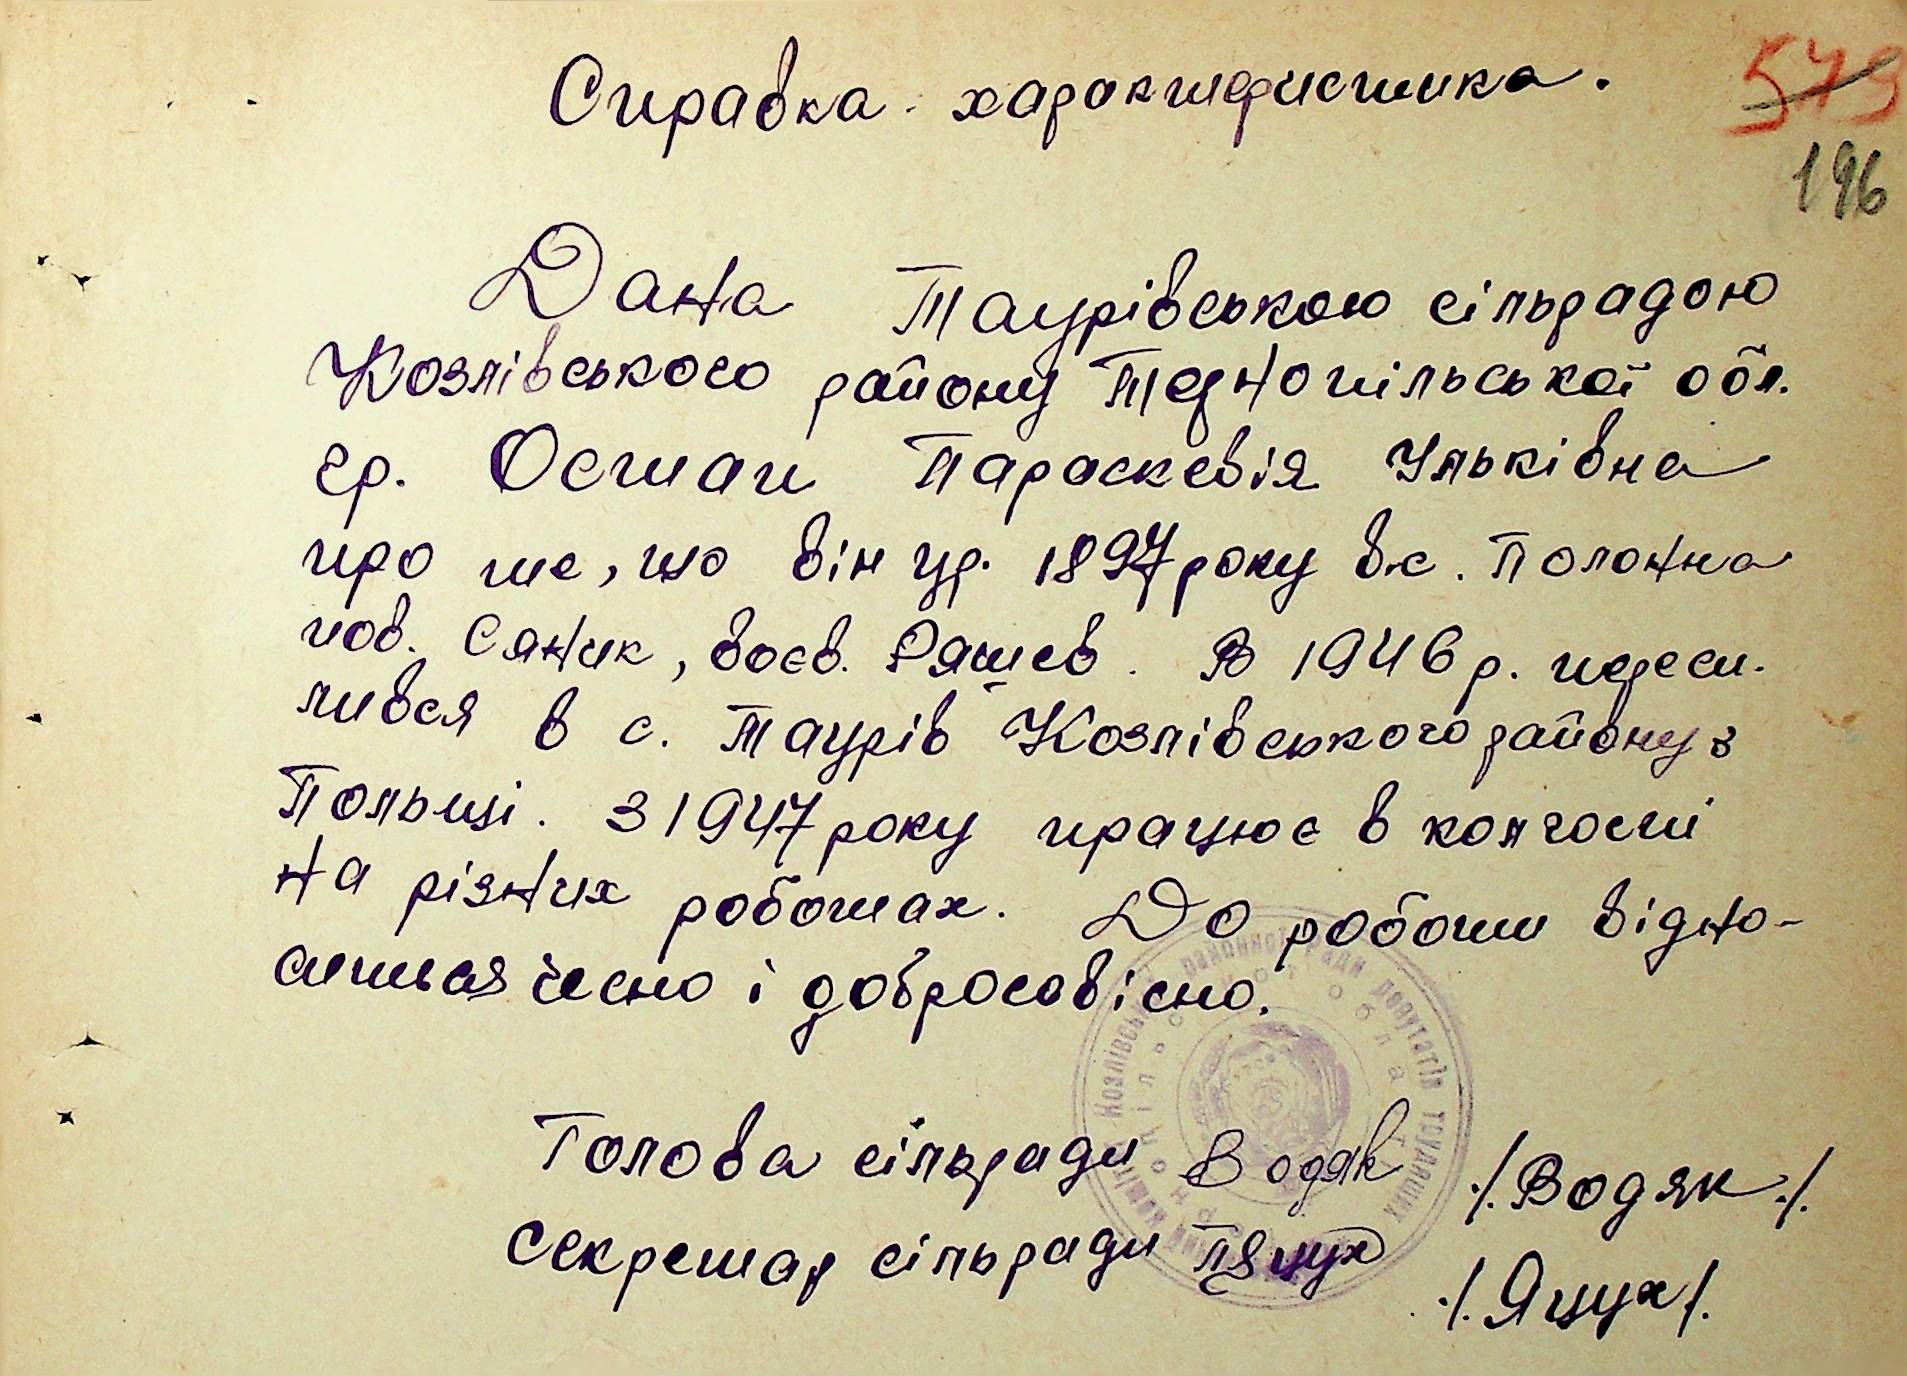 Справка-характеристика.
579
196
Дана Таурівською сільрадою
Козлівського району Тернопільської обл.
гр. Остап Параскевія Ульківна
про те, що він ур. 1897 року в с. Полонна
пов. Сянік, воєв. Ряшев. В 1946 р. пересе-
лився в с. Таурів Козлівського району з
Польщі. З 1947 року працює в колгоспі
на різних роботах. До роботи відно-
ситься чесно і добросовісно.
Голова сільради Водяк /Водяк/.
Секретар сільради Яцух /Яцух/.
Козлівської районної ради депутатів трудящих